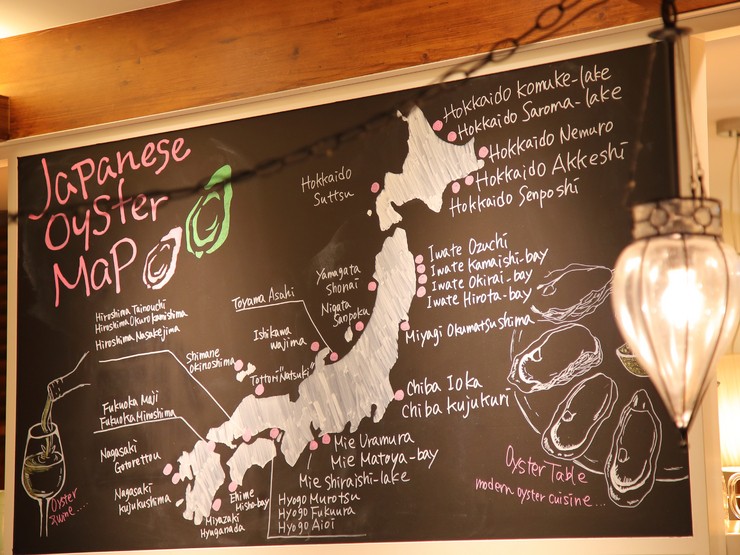 Japanese
Oyster
Map
Hokkaido Komuke-lake
Hokkaido Saroma-lake
Hokkaido Nemuro
Hokkaido Akkeshi
Hokkaido Senposhi
Hokkaido
Suttsu
Iwate Ozuchi
Iwate Kamaishi-bay
Iwate Okirai-bay
Iwate Hirota-bay
Miyagi Okumatsushima
Yamagata
Shonai
Nigata
Sanpoku
Toyama Asaki
Ishikawa
Wajima
Hiroshima Tainouchi
Hiroshima Okurokamishima
Hiroshima Nasakejima
Shimane
Okinoshima
Tottori "Natsuki"
Chiba Ioka
Chiba Kujukuri
Fukuoka Maji
Fukuoka Hiroshima
Nagasaki
Gotorettou
Nagasaki
Kujukushima
Miyazaki
Hyuganada
Ehime
Misho-bay
Mie Uramura
Mie Matoya-bay
Mie Shiraishi-lake
Hyogo Murotsu
Hyogo Fukuura
Hyogo Aioi
Oyster Table
modern oyster cuisine...
Oyster